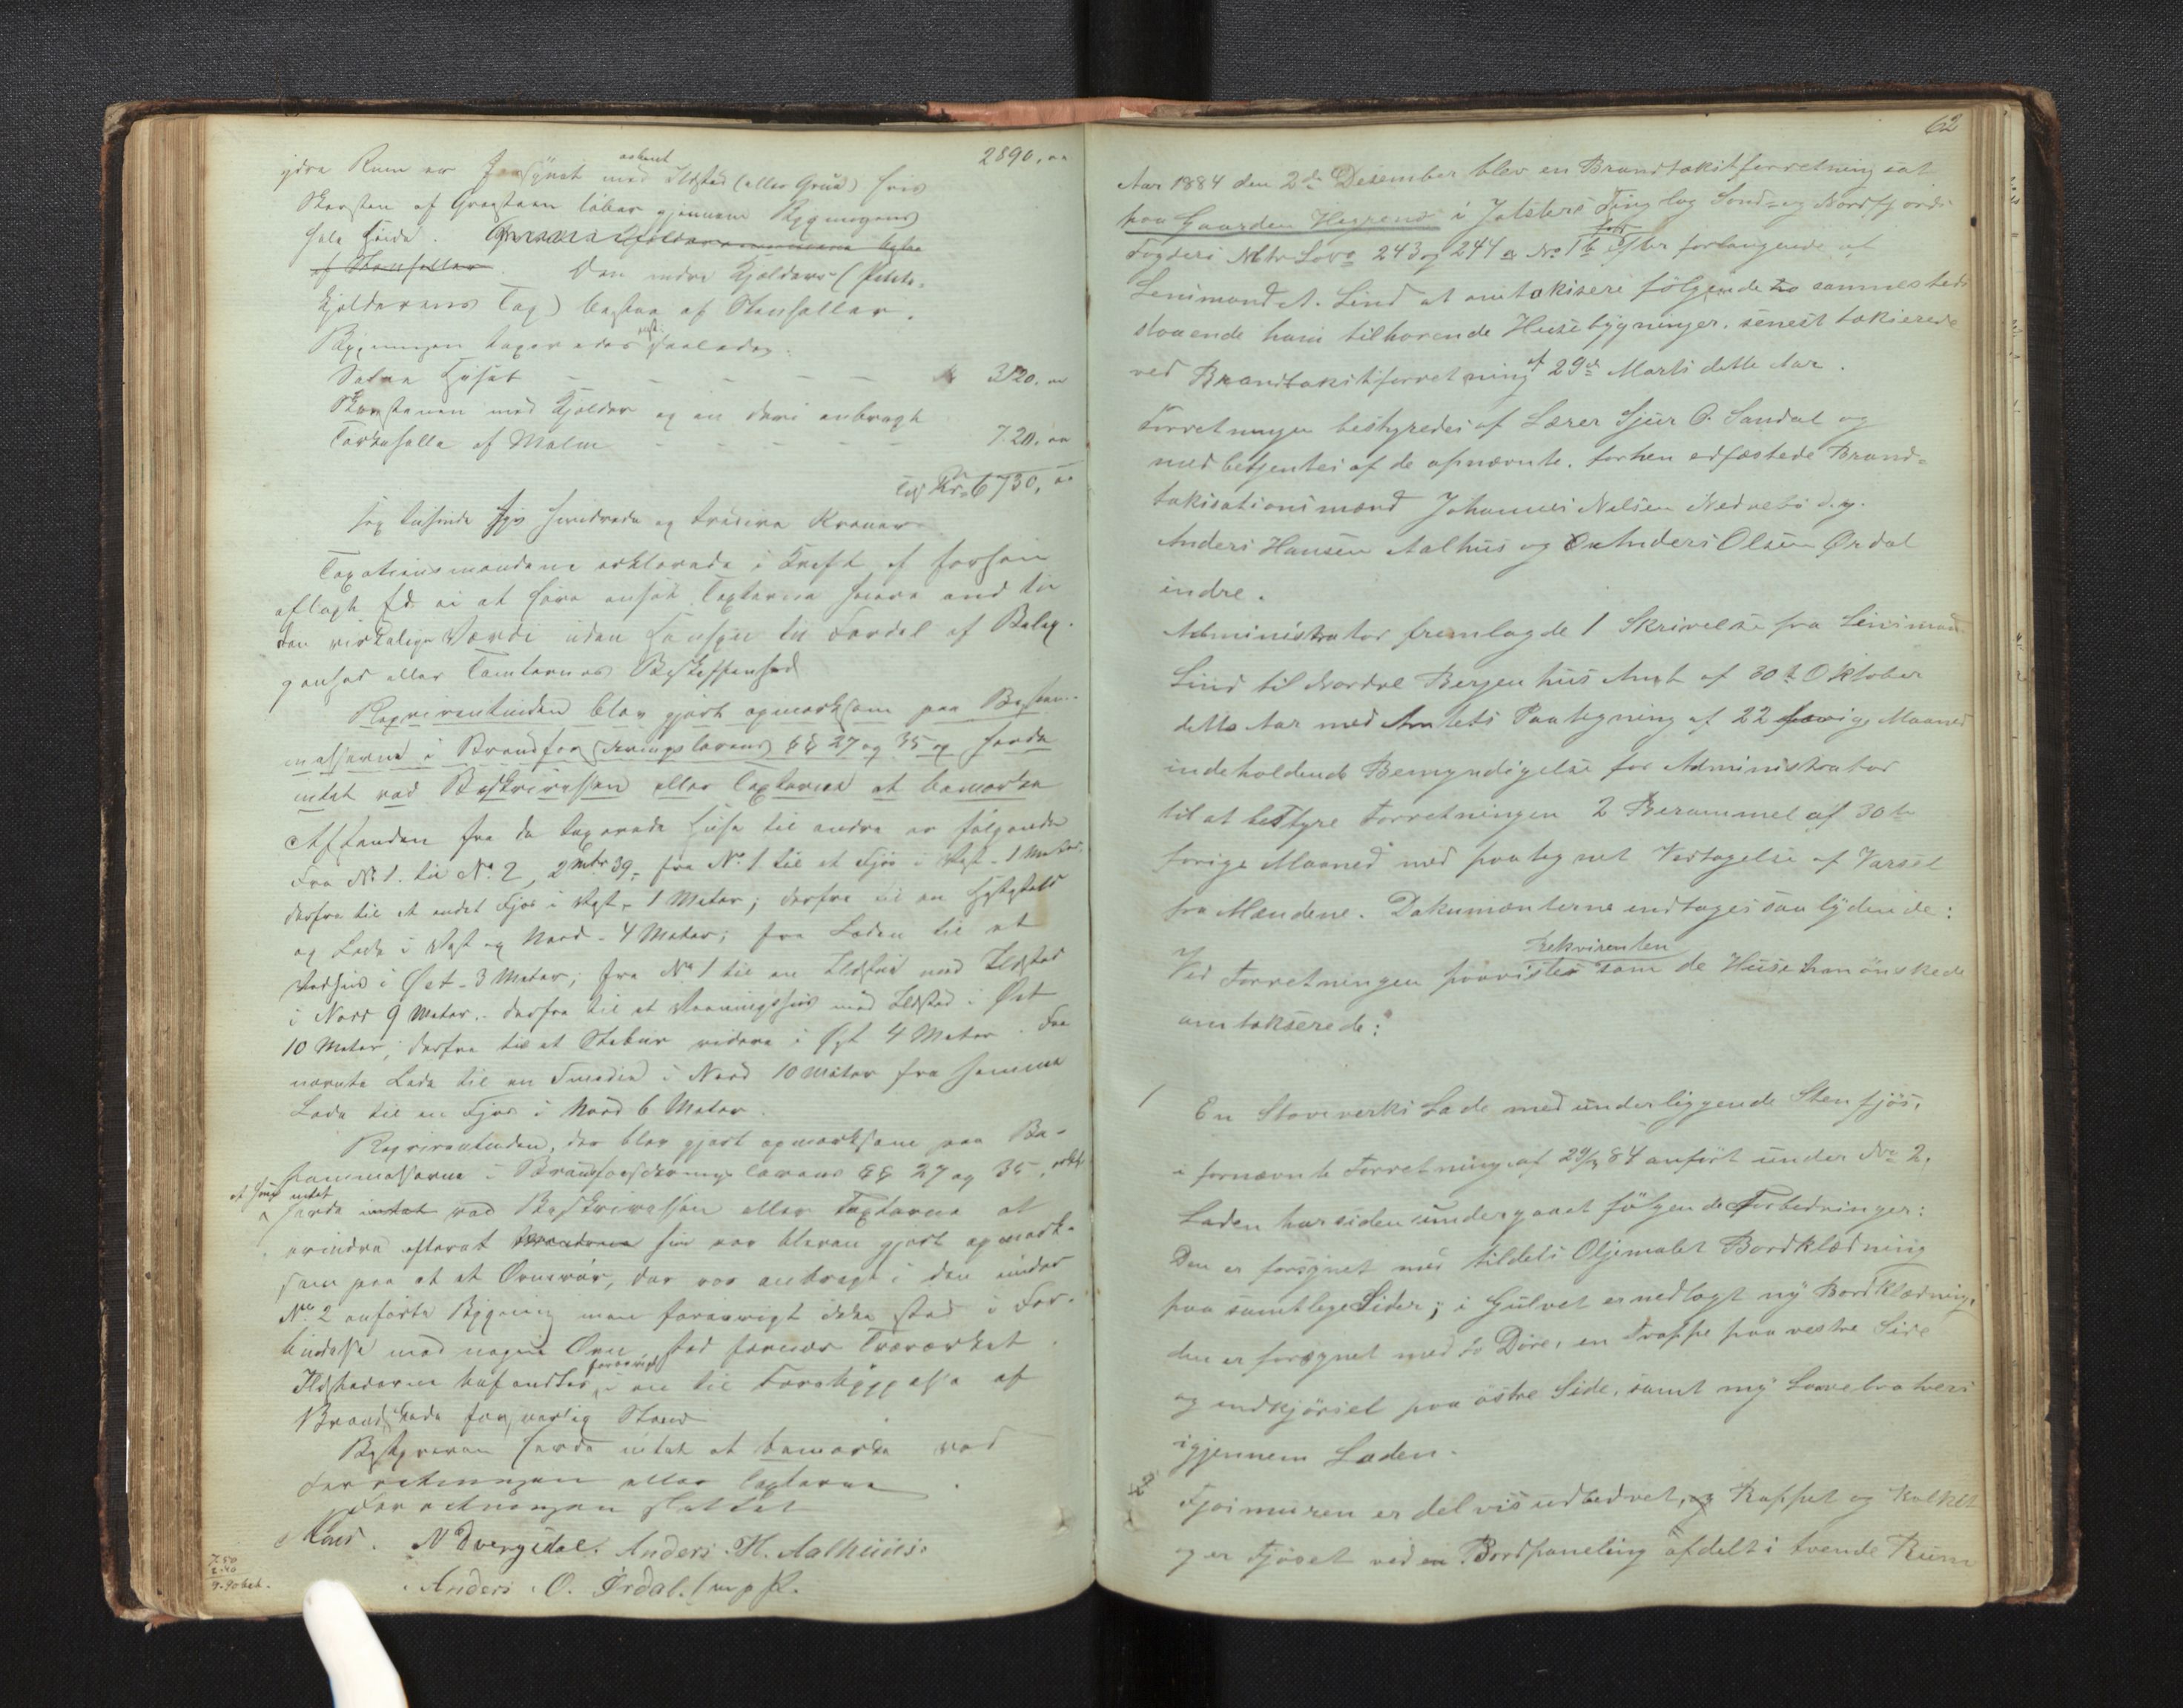 2890,00
ydre Rum er forsynet med Ildsted (eller Grue) hvis
aabent
Skorsten af Graasteen löber gjennem Bygningens
hele Høide.
af Stenheller. Den indre Kjelders (Potet-
kjelderens Tag) bestaa af Stenheller.
Bygningen taxeredes saaledes:
Selve Huset - - - - - Kr 3120,00
Skorstenen med Kjelder og en deri anbragt
Tørkehelle af Malm - - - - - 720,00
Tils Kr. 6730,00
sex tusinde syv hundrede og tredive Kroner
Taxationsmændene erklærede i Kraft af forhen
aflagt Ed ei at have ansat Taxterne høiere end til
den virkelige Værdi uden Hensyn til Fordel af Belig-
genhed eller Tomternes Beskaffenhed
Rekvirentinden blev gjort opmerksom paa Bestem-
melserne i Brandforsikringslovens §§ 27 og 35 og havde
intet ved Beskrivelsen eller Taxterne at bemærke
Afstanden fra de taxerede Huse til andre er følgende
Fra No 1. til No. 2, 2 mtr 39, fra No. 1 til et Fjøs i Vest - 1 Meter,
derfra til et andet Fjøs i Vest - 1 Meter; derfra til en Hestestald
og Lade i Vest og Nord - 4 Meter; fra Laden til et
Vedhus i Øst - 3 Meter; fra No 1 til en Ildhus med Ildsted
i Nord 9 Meter. - derfra til et Vaaningshus med Ildsted i Øst
10 Meter; derfra til et Stabur videre i Øst 4 Meter. Fra
nævnte Lade til en Smedie i Nord 10 Meter fra samme
Lade til en Fjøs i Nord 6 Meter.
Rekvirentinden, der blev gjort opmerksom paa Be-
stemmelserne i Brandforsikringslovens §§ 27 og 35,
havde intet ved Beskrivelsen eller Taxterne at
erindre efterat hun var bleven gjort opmerk-
som paa at et Ovnsrör, der var anbragt i den under
No 2 anførte Bygning men forøvrigt ikke stod i For-
bindelse med nogen Ovn, stod for nær Træværket.
Ildstederne befandtes forøvrigt i en til Forebyggelse af
Brandskade forsvarlig Stand
Bestyreren havde intet at bemærke ved
Forretningen eller Taxterne.
Forretningen sluttet
N Dvergsdal. Anders H. Aalhuus.
Anders O. Årdal. m p P.
7.50
2.40
9.90 bet.
62
Aar 1884 den 2de Desember blev en Brandtakstforretning sat
paa Gaarden Hegrenes i Jølsters Tinglag Sond- og Nordfjords
Fogderi Mtr Løbno 243 og 244 a No 1 b efter forlangende af
Lensmand A. Lind at omtaksere følgende to sammesteds
staaende ham tilhorende Husebygninger, senest takserede
ved Brandtakstforretning af 29de Marts dette Aar.
Forretningen bestyredes af Lærer Sjur O. Sandal og
medbetjentes af de opnævnte, forhen edfæstede Brand-
taksationsmænd Johannes Nilsen Nedrebö d.y.
Anders Hansen Aalhus og Anders Olsen Ørdal
indre.
Administrator fremlagde 1 Skrivelse fra Lensmand
Lind til Nordre Bergenhus Amt af 30te Oktober
dette Aar med Amtets Paategning af 22 forrige Maaned
indeholdende Bemyndigelse for Administrator
til at bestyre Forretningen 2 Berammel af 30te
forrige Maaned med paategnet Vedtagelse af Varsel
fra Mændene. Dokumenterne indtages saa lydende:
Ved Forretningen paavistes Rekvirenten som de Huse han önskede
omtakserede:
1 En Stavverks Lade med underliggende Stenfjös,
i fornævnte Forretning af 29/3 84 anført under No 2.
Laden har siden undergaaet fölgende Forbedringer:
Den er forsynet med tildels Oljemalet Bordklædning
paa samtlige Sider; i Gulvet er nedlagt ny Bordklædning;
den er forsynet med to Döre, en Trappe paa vestre Side
og indkjörsel paa östre Side, samt ny Laavebro tvers
igjennem Laden.
Fjösmuren er delvis udbedret, Rappet og Kalket
og er Fjöset ved en Bordpaneling afdelt i tvende Rum